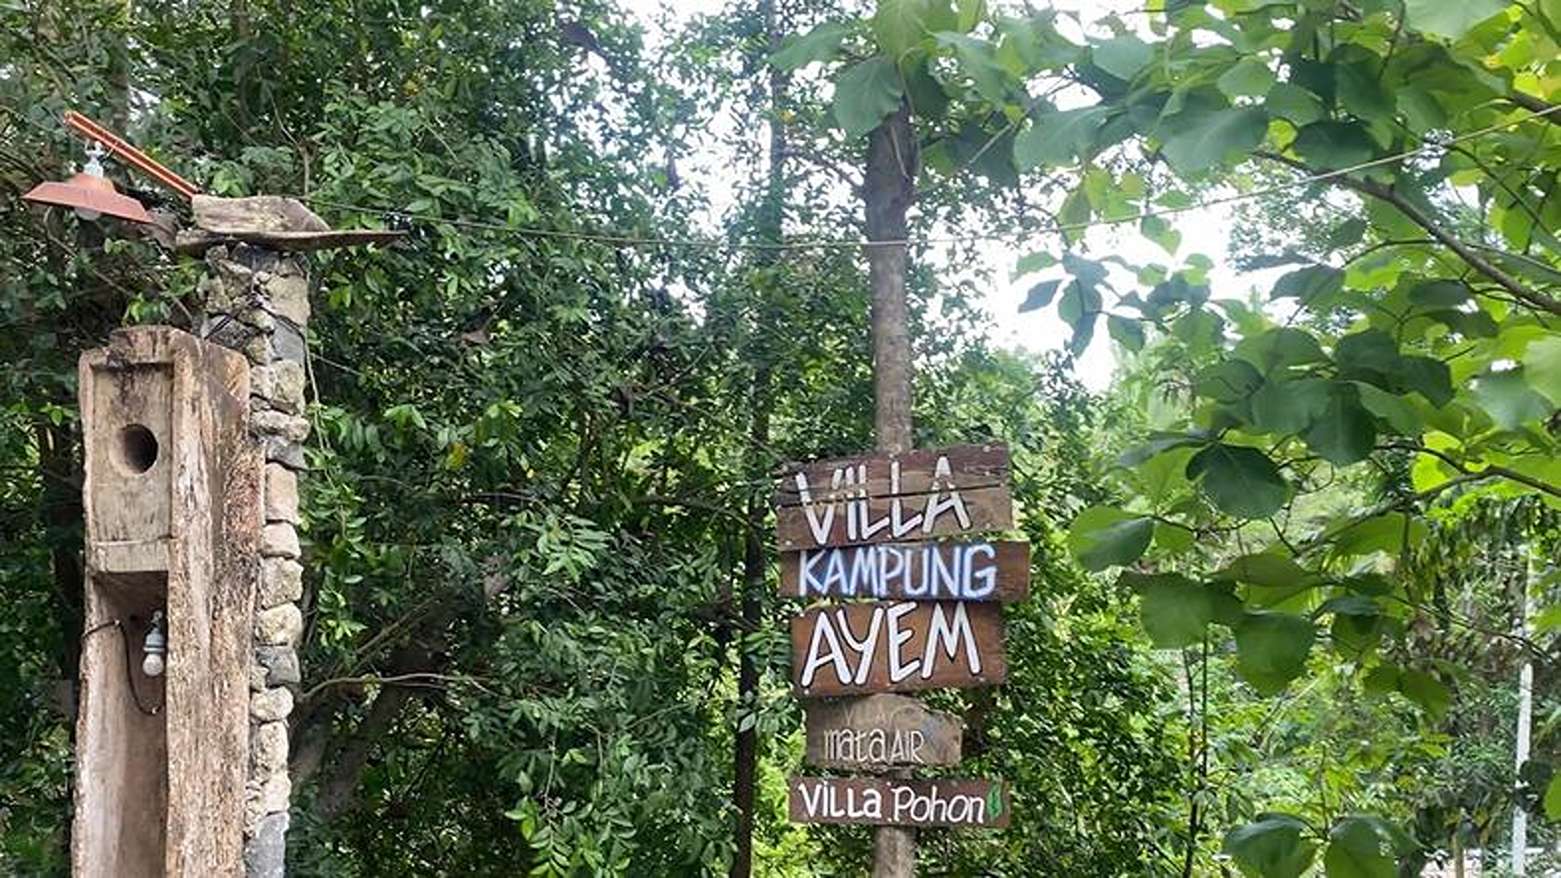 VILLA
KAMPUNG
AYEM
mata AIR
VILLA Pohon